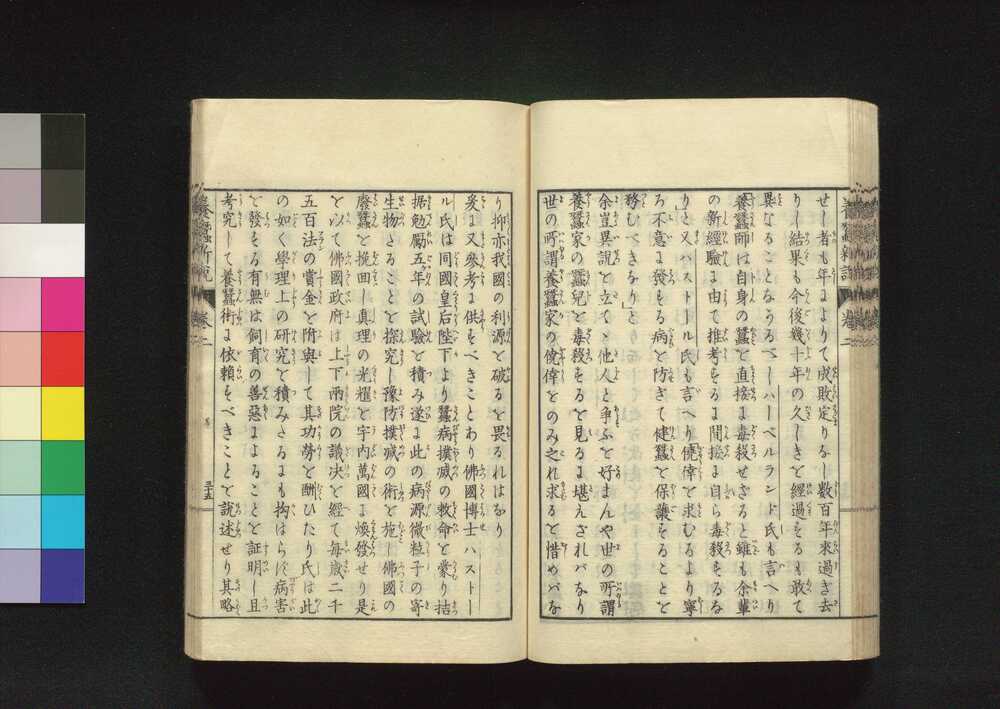 せし者も年によりて成敗定りなし數百年來過ぎ去
りし結果も今後幾十年の久しきを經過をるも敢て
異なることなかるべしハーベルランド氏も言へり
「養蠶師は自身の蠶を直接に毒殺せざると雖も余輩
の新經驗に由て推考をるに間接に自ら毒殺をるな
りと」又ハストール氏も言へり「僥倖を求むるより寧
ろ不意に發をる病を防ぎて健蠶を保護をることを
務むべきなり」と
余豈異説を立てを他人と爭ふを好まんや世の所謂
養蠶家の蠶兒を毒殺をるを見るに堪えざれバなり
世の所謂養蠶家の僥倖をのみ之れ求るを惜めバな
り抑亦我國の利源を破るを畏るれはなり
爰に又參考に供をべきことあり佛國博士ハストー
ル氏は同國皇后陛下より蠶病撲滅の敕命を蒙り拮
据勉勵五年の試驗を積み遂に此の病源微粒子の寄
生物たることを探究し豫防撲滅の術を施し佛國の
廢蠶を挽回し眞理の光耀を宇内萬國に煥發せり是
を以て佛國政府は上下兩院の議決を經て毎歳二千
五百法の賞金を附與して其功勞を酬ひたり氏は此
の如く學理上の研究を積みたるにも拘はらば病害
を發をる有無は飼育の善惡によることを証明し且
考究して養蠶術に依頼をべきことを説述せり其略
卷二
三十五